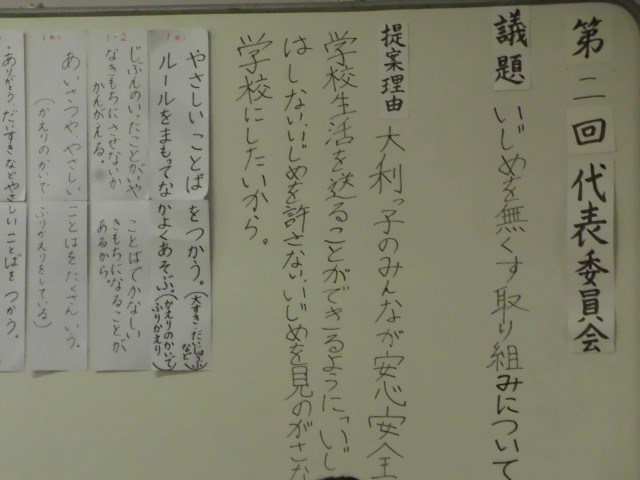 第二回 代表委員会
議題 いじめを無くす取り組みについて
提案理由 大利っ子のみんなが安心安全
学校生活を送ることができるように、「いじ
はしない、いじめを許さない、いじめを見のがさな
学校にしたいから。
やさしい ことば をつかう。(大すき・だいじょうぶ など)
ルールをまもってなかよくあそぶ。(かえりのかいで ふりかえり)
1-2
じぶんのいったことがいや
なきもちにさせないか
かんがえる。
ことばでかなしい
きもちになることが
あるから
あいさつや、やさしい ことばをたくさん いう。
(かえりのかいで ふりかえりをしている)
・ありがとう だいすきなどやさしい ことばを つかう。